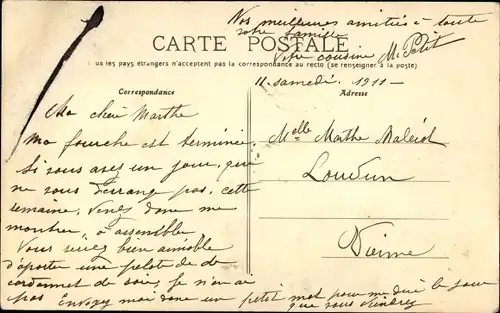 Nos meilleures amitiés à toute
votre famille
Votre cousine M Petit
CARTE POSTALE
us les pays étrangers n'acceptent pas la correspondance au recto (se renseigner à la poste)
11 samedi 1911-
Correspondance
Ma chère Marthe
Ma fourche est terminée.
Si vous avez un jour, que
ne vous dérange pas, cette
semaine, venez donc me
montrer, à assemblée
Vous seriez bien aimable
d'aporter une pelote de
cordonnet de soie, je n'en ai
pas Envoyez moi donc un petit mot pour me dire le jour
que vous viendrez
Adresse
Melle Marthe
Loudun
Vienne